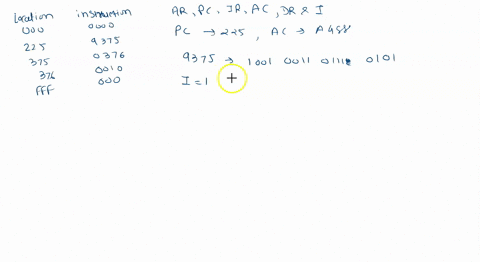 Location instruction
000 0000
225 9375
375 0376
376 0010
FFF 000
AR, PC, IR, AC, DR & I
PC → 225, AC → A488
9375 → 1001 0011 0111 0101
I = 1